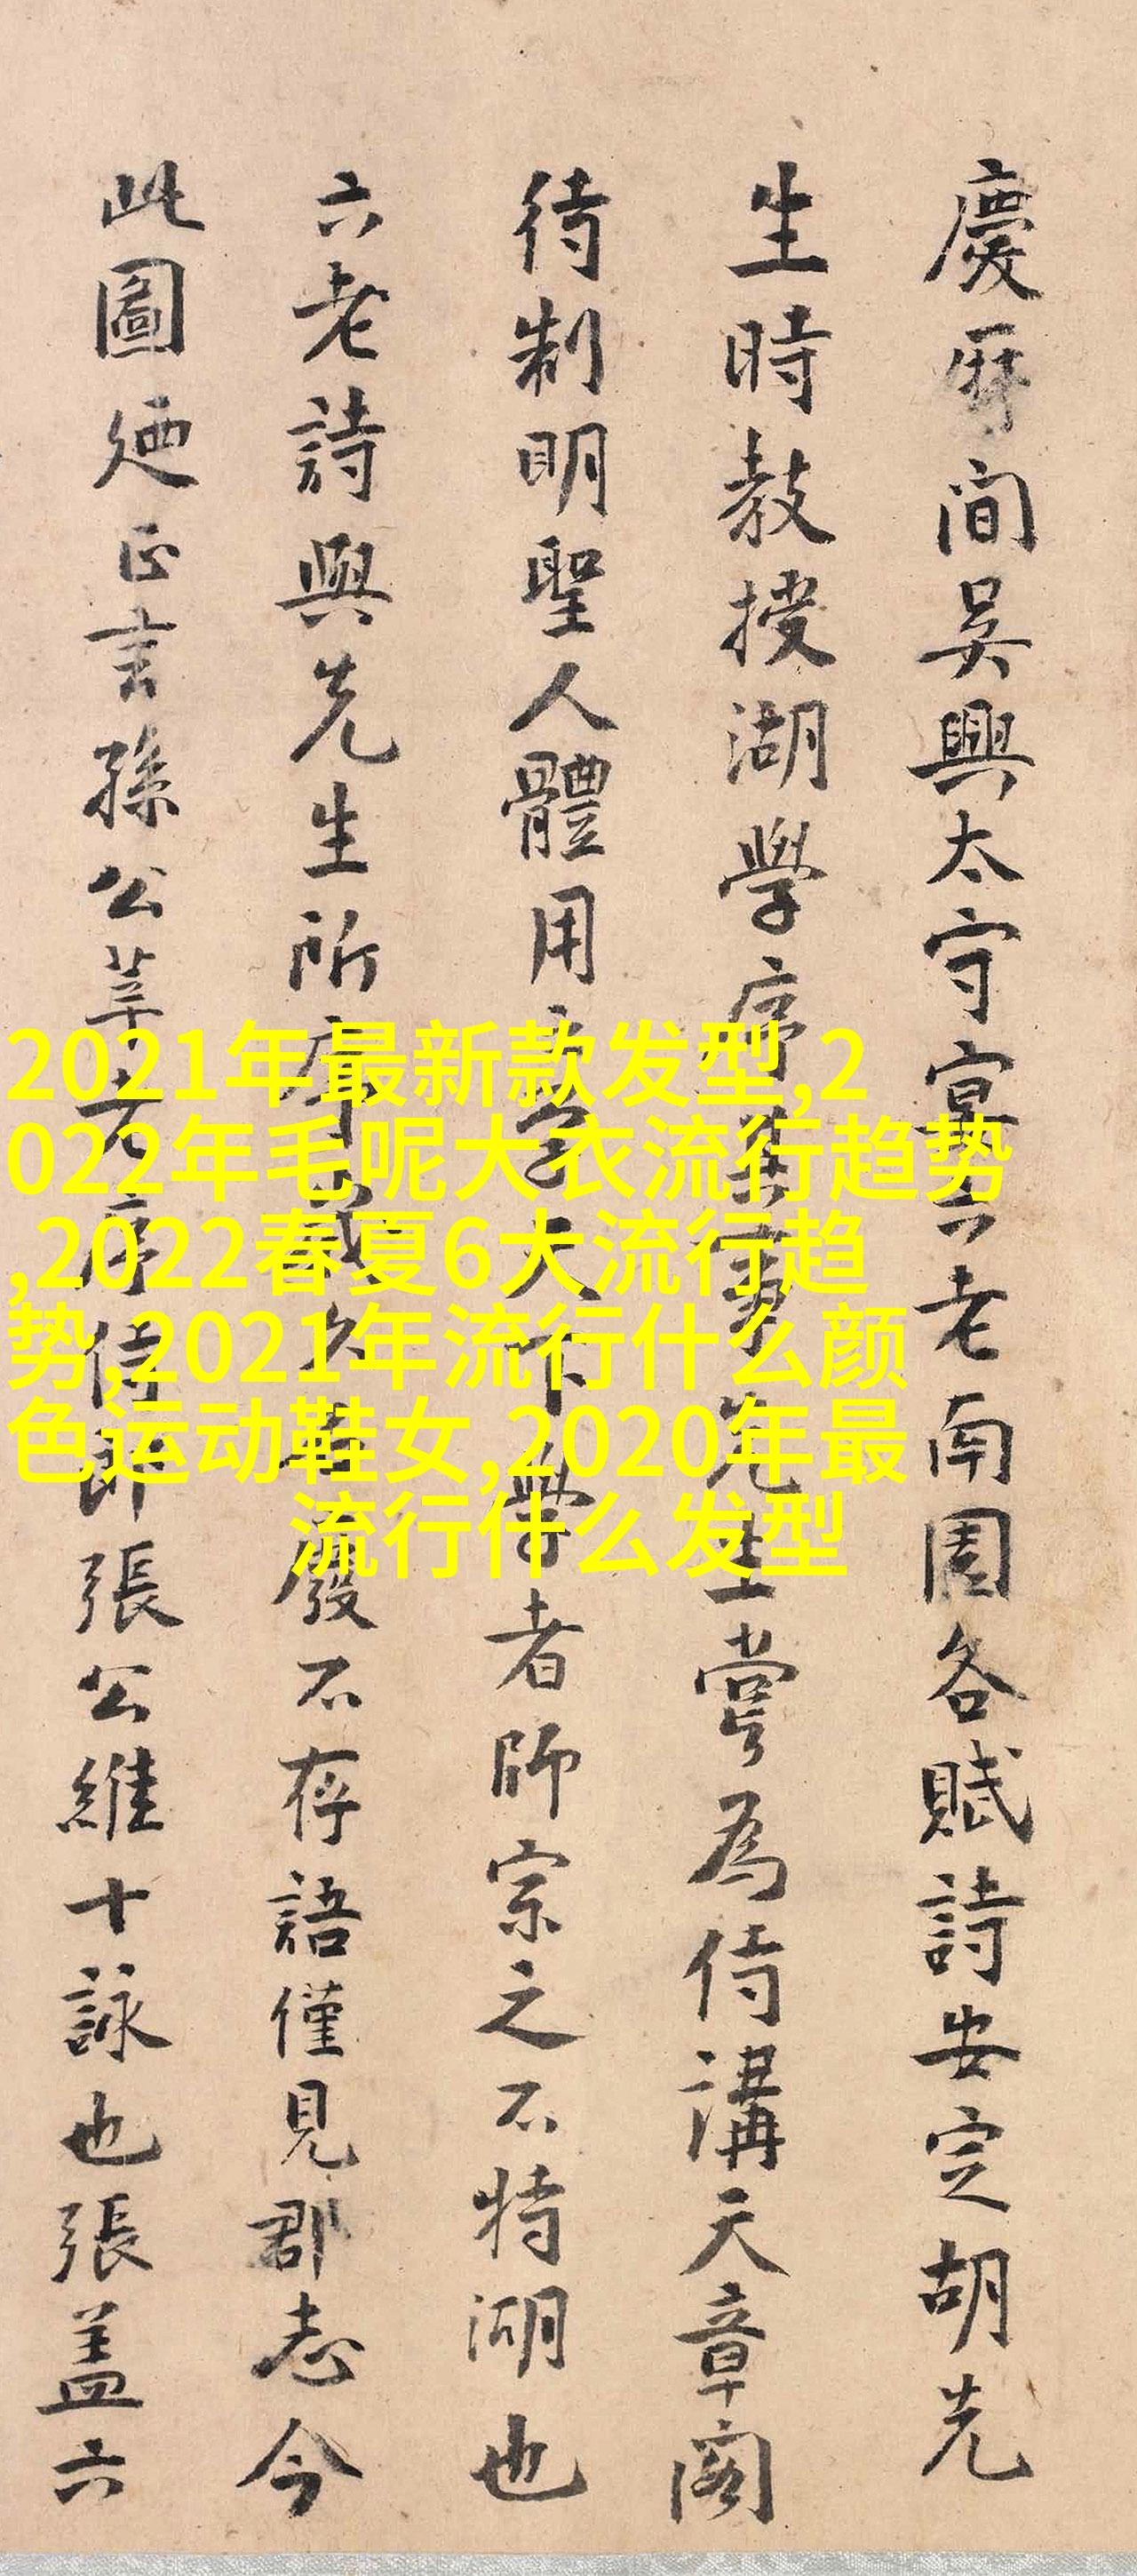 慶曆間吳興太守宴六老南園各賦詩安定胡先
生時教授湖學序其事先生嘗為侍講天章閣
待制明聖人體用之學天下學者師宗之不特湖也
六老詩與先生所序歲久廢不存語僅見郡志今
此圖廼正言孫公莘老序侍郎張公維十詠也張蓋六
2021年最新款发型,2
022年毛呢大衣流行趋势
,2022春夏6大流行趋
势,2021年流行什么颜
色运动鞋女,2020年最
流行什么发型